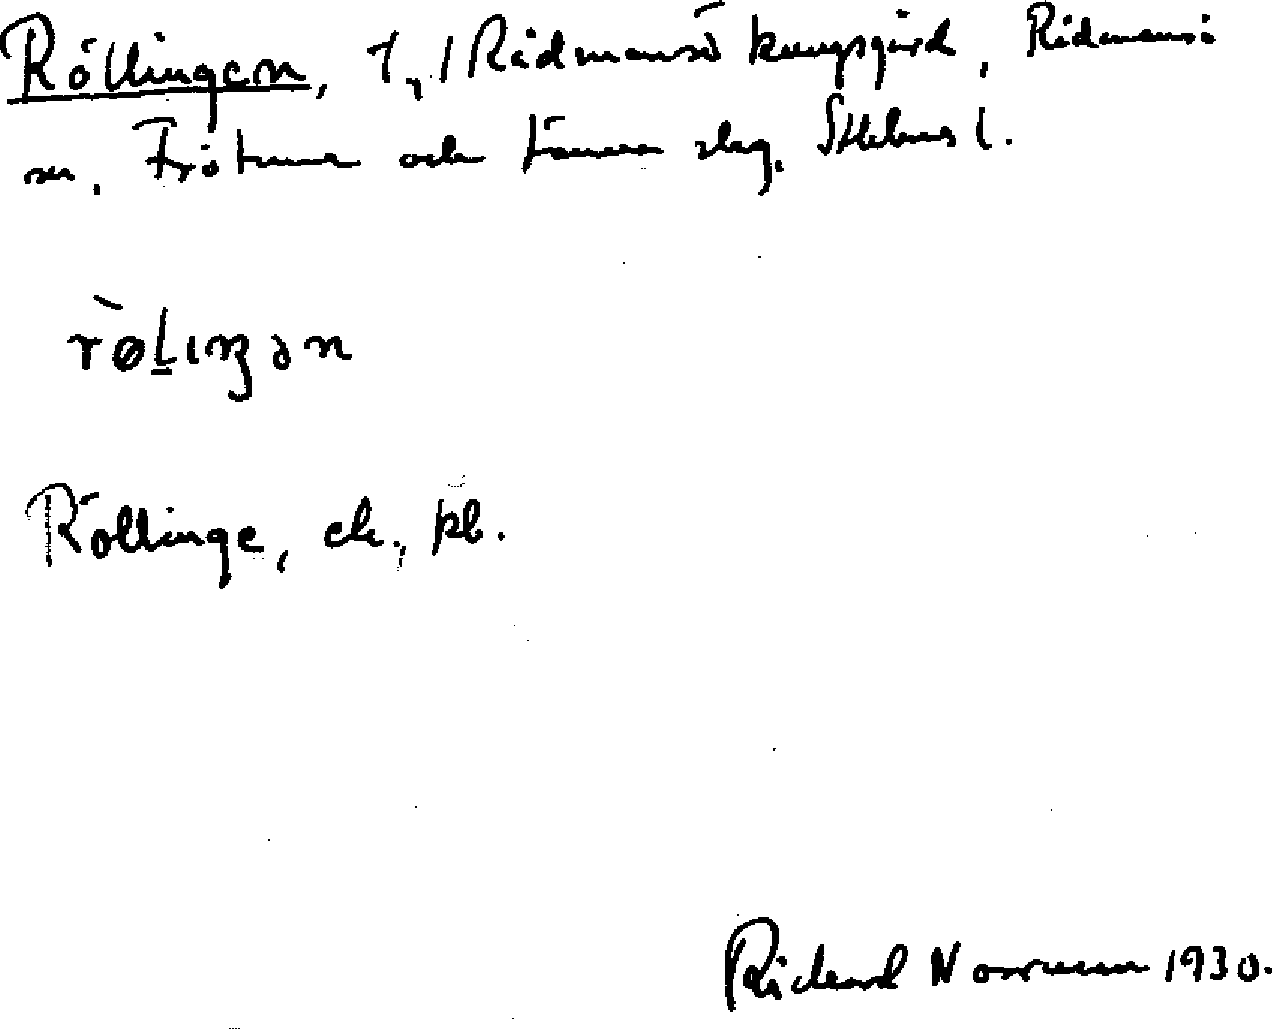 Röllingen, t., Rådmansö kungsgård, Rådmansö
sn, Frötuna och Länna slag, Sthlms l.
rø̀lıŋən
Röllinge, ek., kb.
Rickard Norrman 1930.